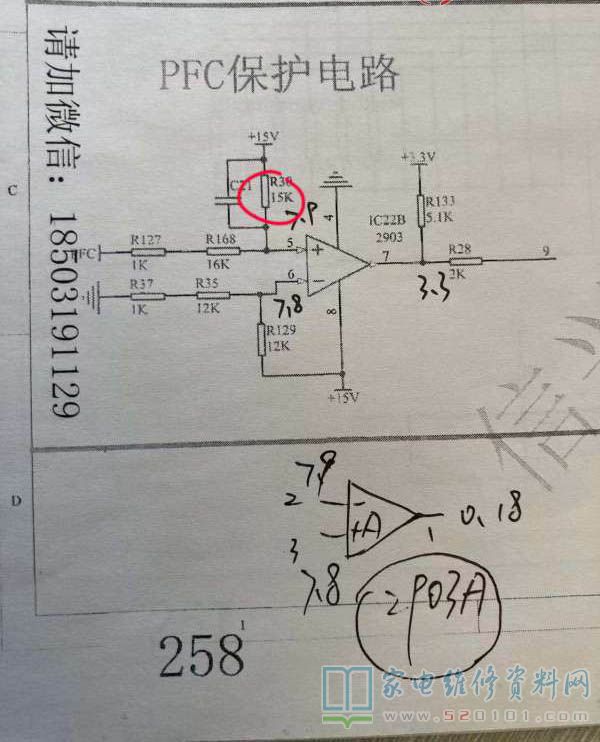 PFC保护电路
请加微信：18503191129
C
+15V
+3.3V
C21
R30
15K
7.9
4
IC22B
2903
R133
5.1K
R127
1K
R168
16K
5
+
7
R28
2K
9
3.3
R37
1K
R35
12K
6
−
7.8
8
R129
12K
+15V
D
7.9
2
−
+A
3
7.8
1
0.18
2903A
258
1
家电维修资料网
www.520101.com